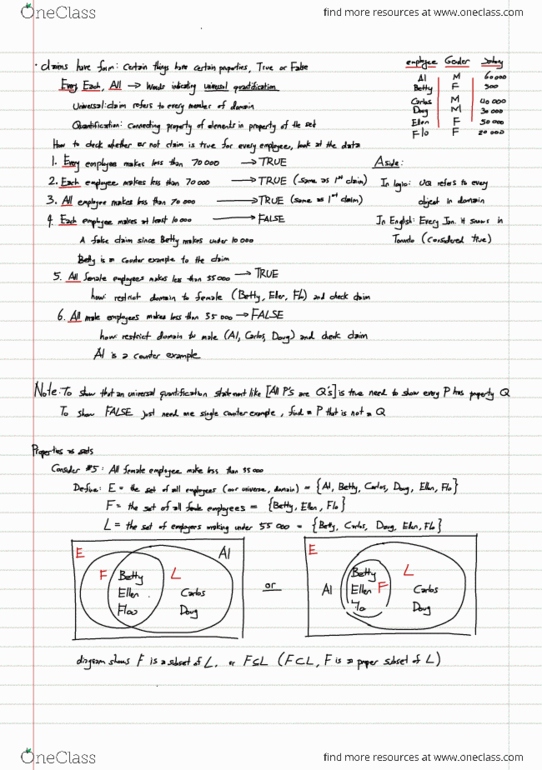 OneClass
find more resources at www.oneclass.com
· claims have form: Certain things have certain properties, True or False
Every Each, All → Words indicating universal quantification
Universal: claim refers to every member of domain
Quantification: connecting property of elements in property of the set
How to check whether or not claim is true for every employee, look at the data
employee Gender Salary
Al M 60 000
Betty F 500
Carlos M 40 000
Doug M 30 000
Ellen F 50 000
Flo F 20 000
1. Every employee makes less than 70 000 → TRUE
2. Each employee makes less than 70 000 → TRUE (same as 1st claim)
3. All employee makes less than 70 000 → TRUE (same as 1st claim)
4. Each employee makes at least 10 000 → FALSE
A false claim since Betty makes under 10 000
Betty is a counter example to the claim
Aside:
In logic: UQ refers to every
object in domain
In English: Every Jan. it snows in
Toronto (considered true)
5. All female employees makes less than 55 000 → TRUE
how: restrict domain to female (Betty, Ellen, Flo) and check claim
6. All male employees makes less than 55 000 → FALSE
how restrict domain to male (Al, Carlos, Doug) and check claim
Al is a counter example
Note: To show that an universal quantification statement like [All P's are Q's] is true need to show every P has property Q
To show FALSE just need one single counter example, find a P that is not a Q
Properties as sets
Consider #5: All female employee make less than 55 000
Define: E = the set of all employees (our universe, domain) = {Al, Betty, Carlos, Doug, Ellen, Flo}
F = the set of all female employees = {Betty, Ellen, Flo}
L = the set of employees making under 55 000 = {Betty, Carlos, Doug, Ellen, Flo}
E
Al
F Betty L
Ellen Carlos
Floo Doug
or
E
Betty L
Al Ellen F Carlos
Flo Doug
diagram shows F is a subset of L, or F⊆L (F⊂L, F is a proper subset of L)
OneClass
find more resources at www.oneclass.com